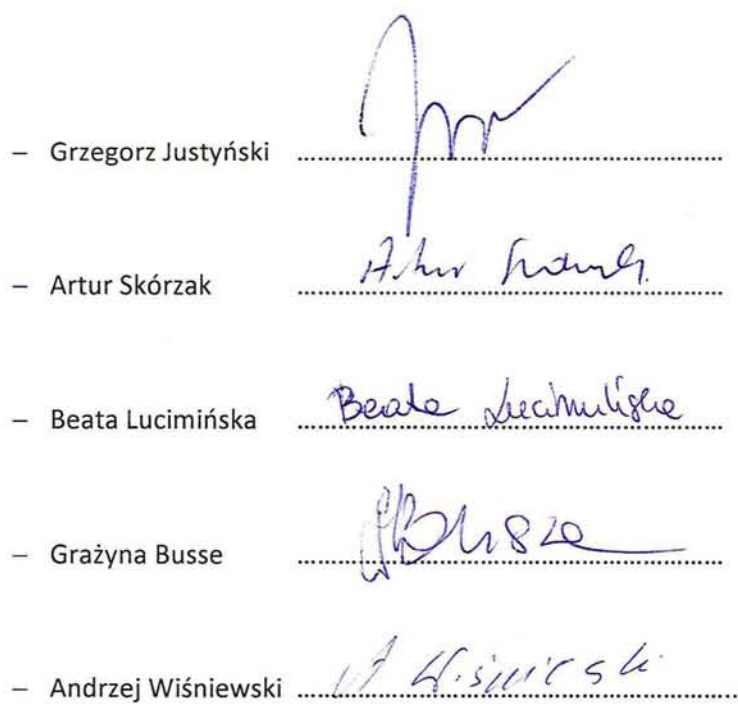 – Grzegorz Justyński ........................................
– Artur Skórzak ........................................ Artur
– Beata Lucimińska ........................................ Beata Lucimińska
– Grażyna Busse ........................................
– Andrzej Wiśniewski ........................................ A Wiśniewski